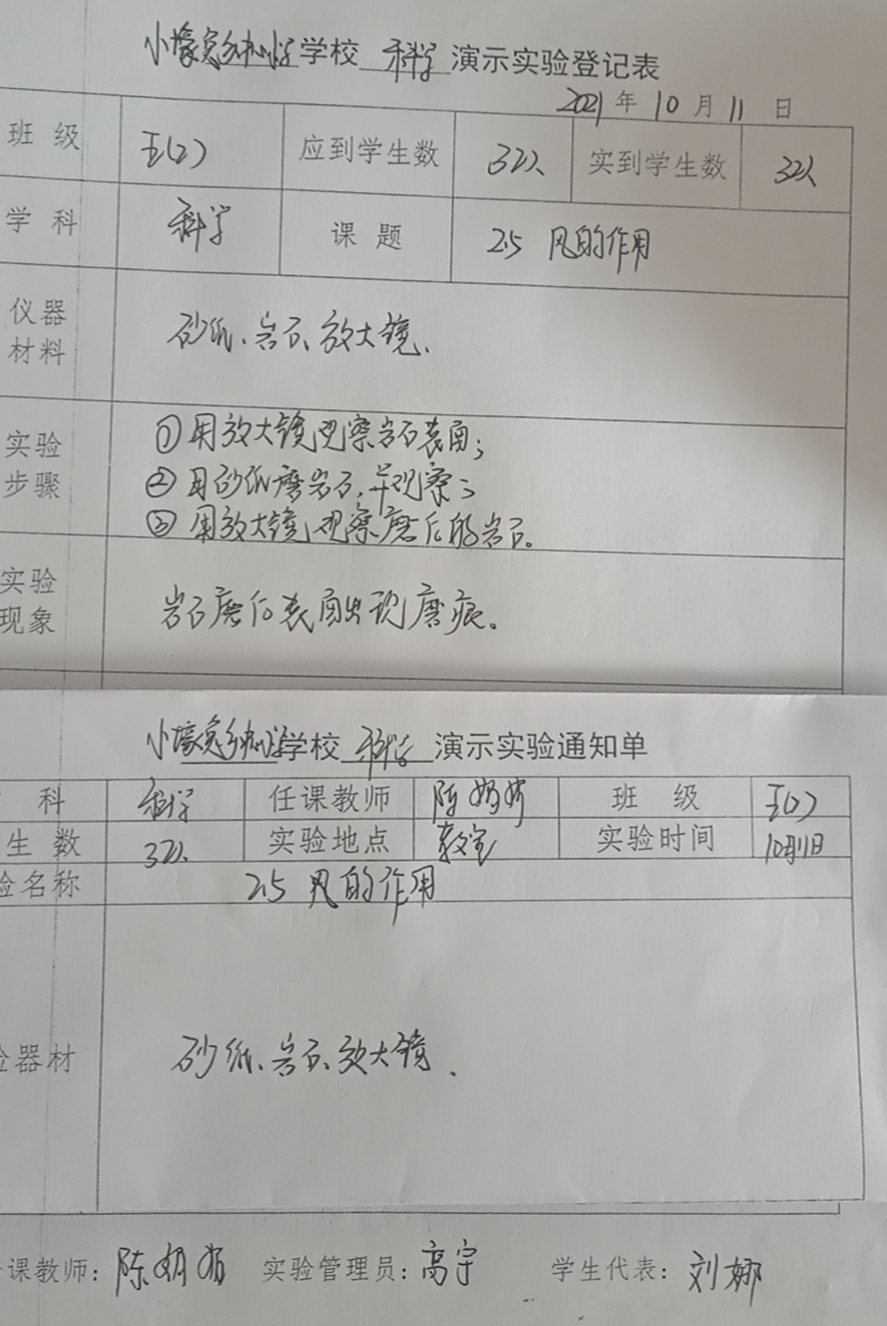 小壕兔乡中心小学学校 科学 演示实验登记表
2021年10月11日
班级 五(2) 应到学生数 32人 实到学生数 32人
学科 科学 课题 2.5 风的作用
仪器材料 砂纸、岩石、放大镜、
实验步骤 ①用放大镜观察岩石表面;
②用砂纸磨岩石,并观察;
③用放大镜观察磨后的岩石。
实验现象 岩石磨后表面出现磨痕。
小壕兔乡中心小学学校 科学 演示实验通知单
科 科学 任课教师 陈 班级 五(2)
生数 32人 实验地点 教室 实验时间 10月11日
验名称 2.5 风的作用
验器材 砂纸、岩石、放大镜.
课教师: 陈 实验管理员: 高宇 学生代表: 刘娜